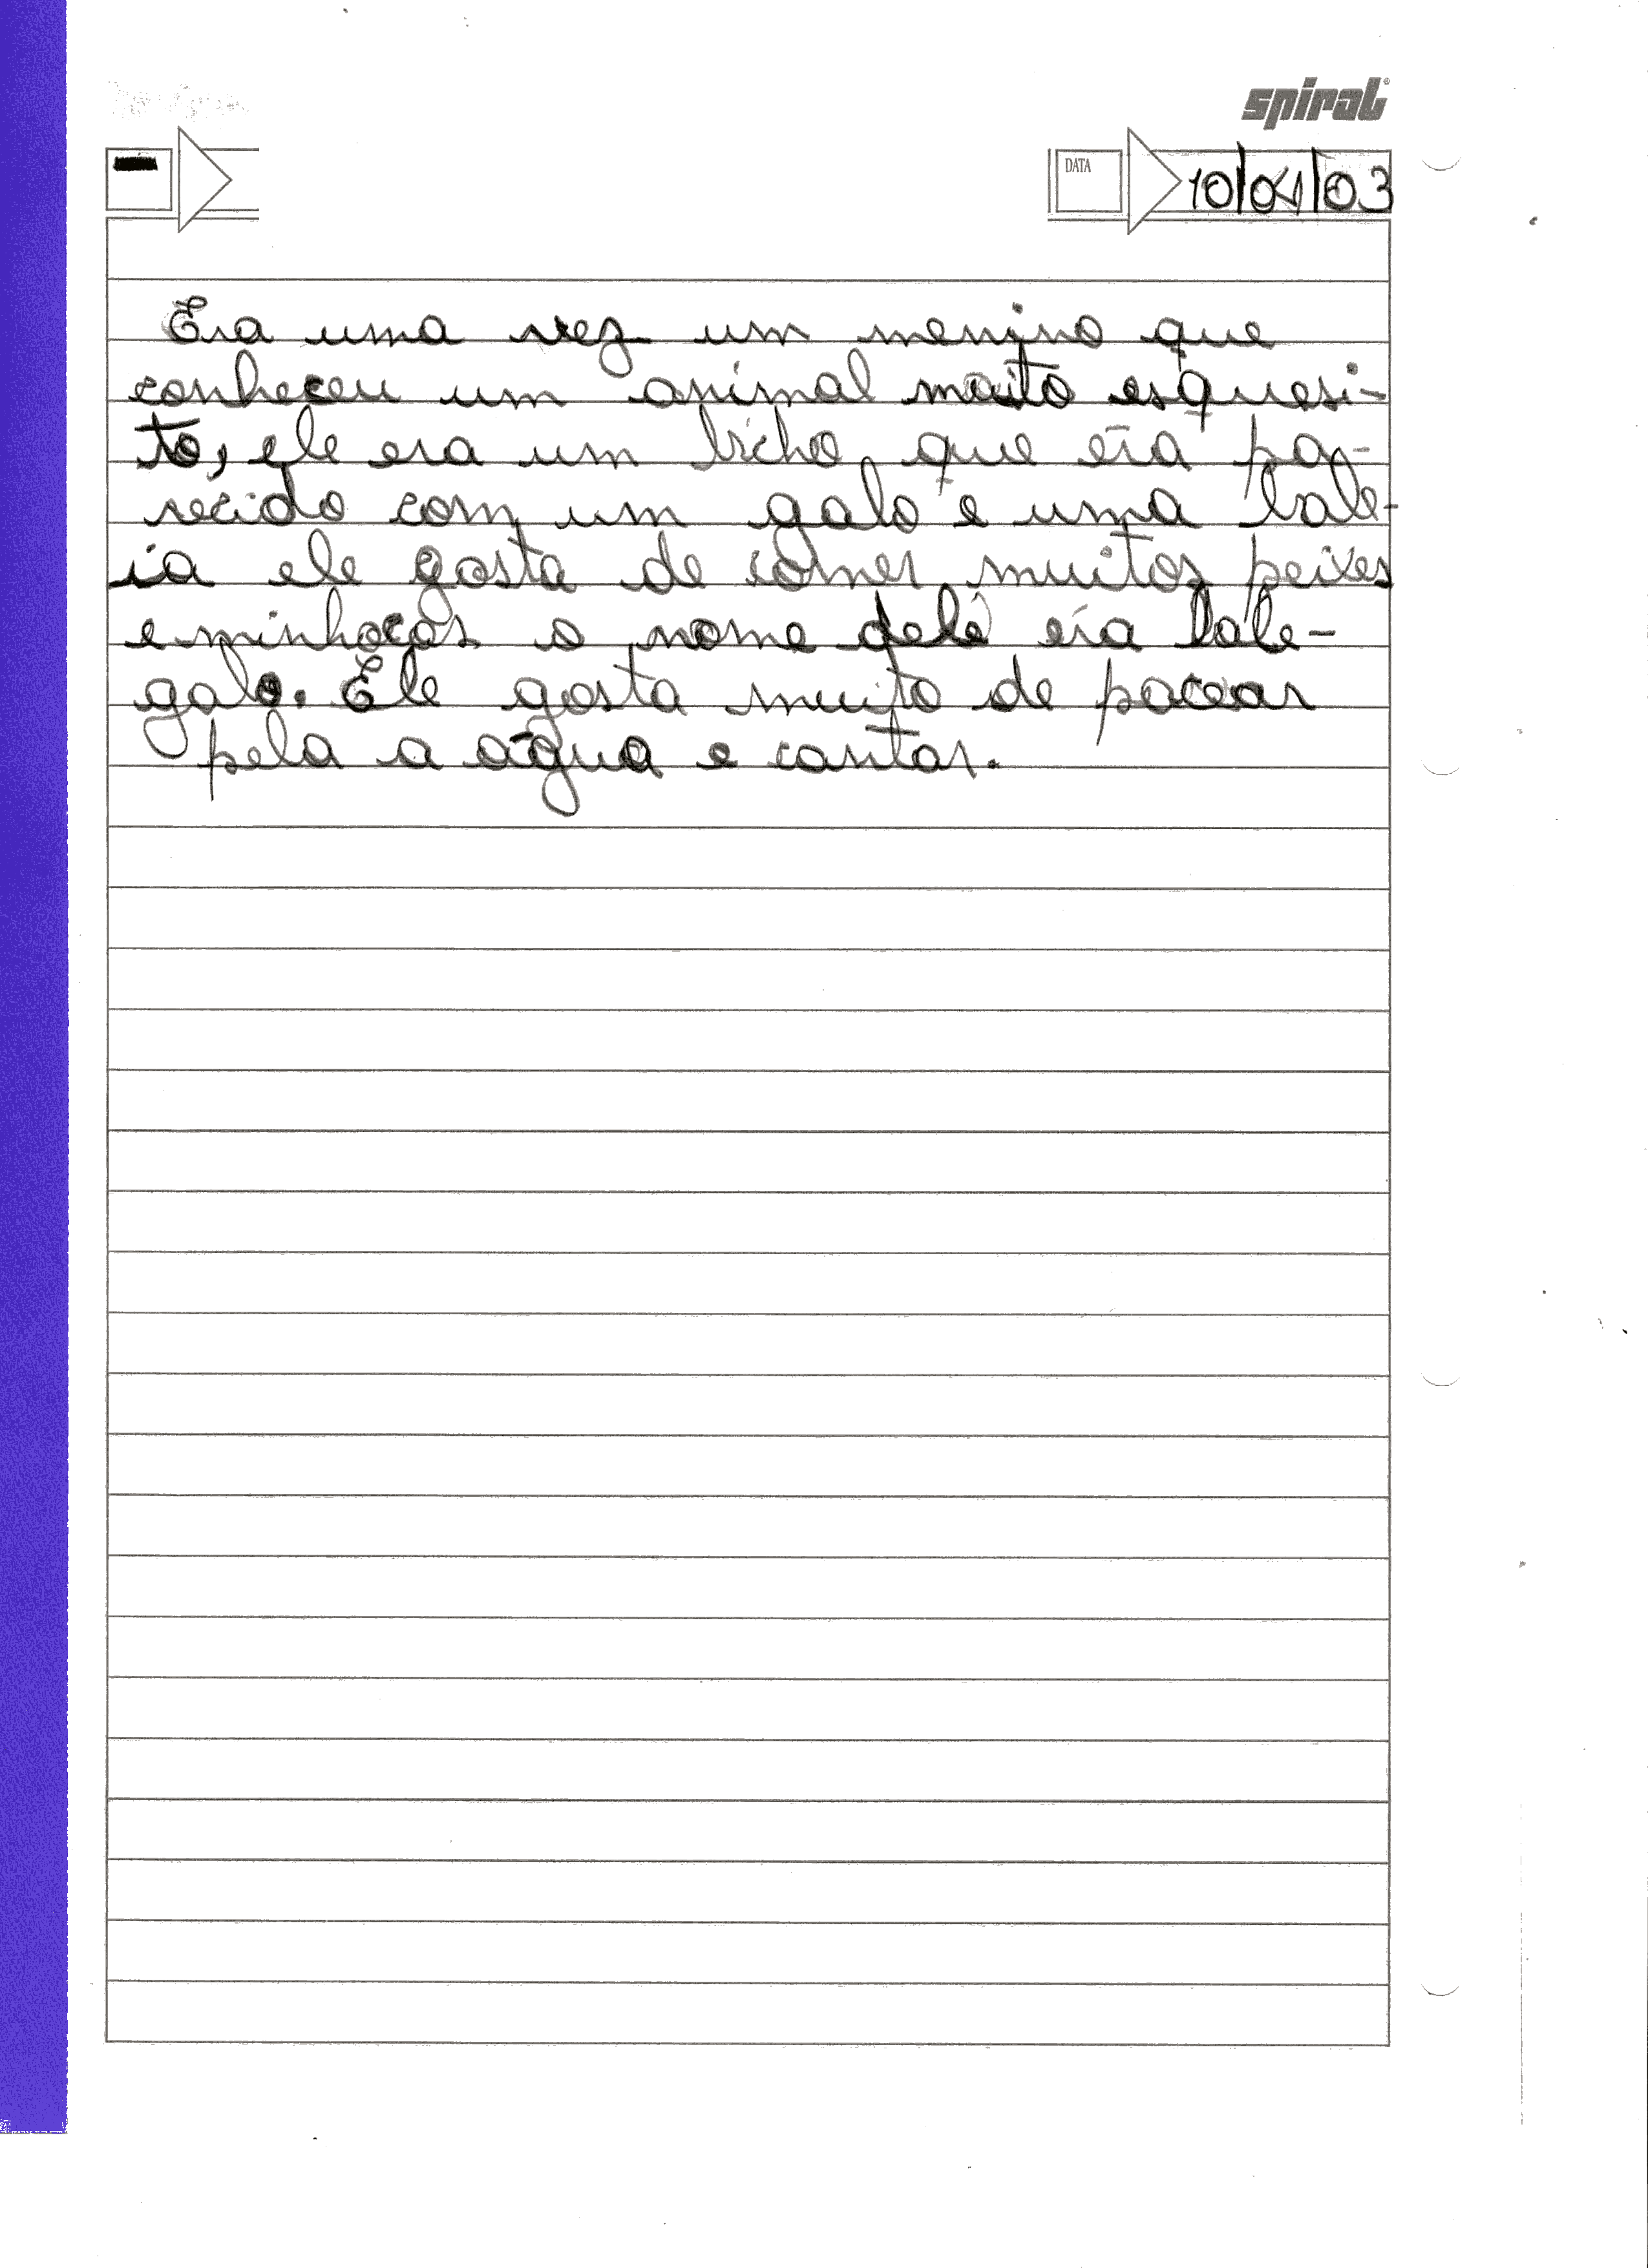 spiral
DATA 10/04/03
Era uma vez um menino que
conheceu um animal muito esquesi-
to, ele era um bicho que era pa-
recido com um galo e uma bale-
ia ele gosta de comer muitos peixes
e minhocas o nome dele era bale-
galo. Ele gosta muito de pacear
pela a água e cantar.